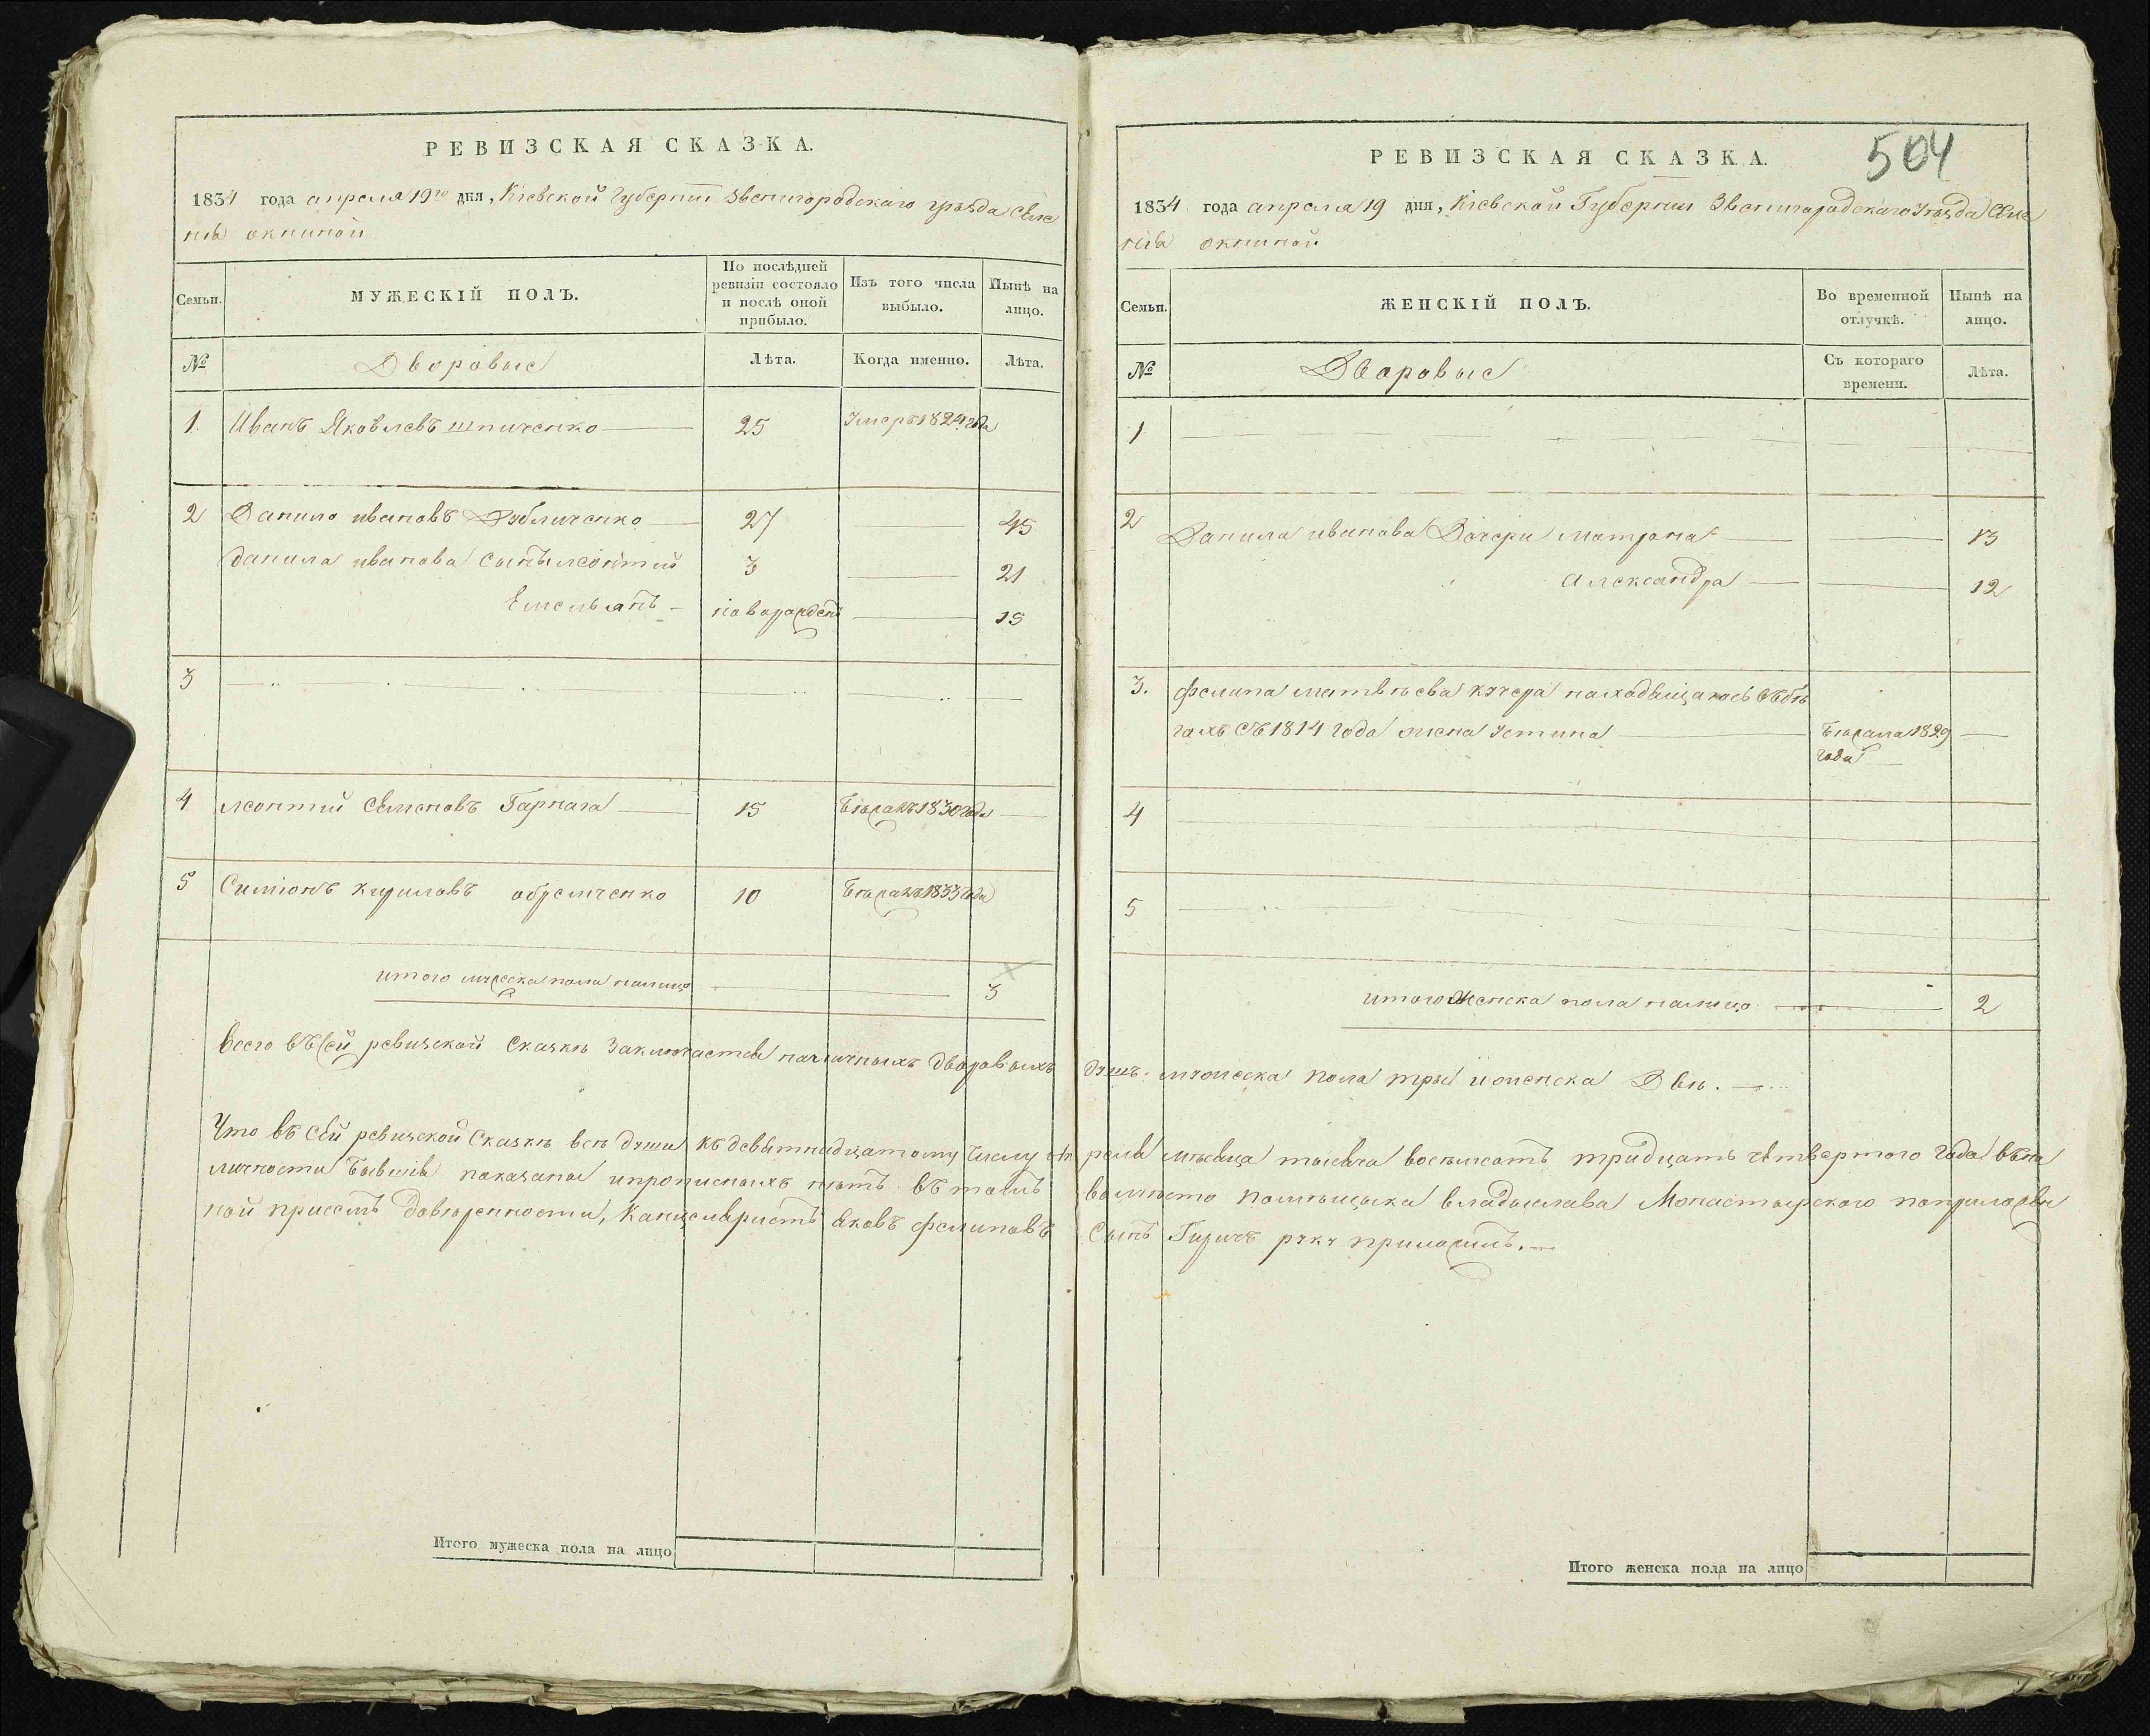 РЕВИЗСКАЯ СКАЗКА.
1834 года апреля 19го дня, Кіевской Губерніи Звенигородскаго уѣзда Селе
нія окниной
Семьи.
МУЖЕСКІЙ ПОЛЪ.
По послѣдней ревизіи состояло и послѣ оной прибыло.
Изъ того числа выбыло.
Нынѣ на лицо.
№
Дворовые
Лѣта.
Когда именно.
Лѣта.
1. Иванъ Яковлевъ шпиченко 25 Умеръ 1824 года
2 Данило ивановъ Дубличенко 27 45
Данила иванова сынъ леонтий 3 21
Емельянъ новорожденъ 15
3
4 леонтий Семеновъ Гарнага 15 Бѣжалъ 1830 года
5 Симіонъ кириловъ обремченко 10 Бѣжалъ 1833 года
итого мужеска пола налицо 3
Итого мужеска пола на лицо
РЕВИЗСКАЯ СКАЗКА.
504
1834 года апреля 19 дня, Кіевской Губернии Звенигородскаго Уѣзда Селе
нія окниной
Семьи.
ЖЕНСКІЙ ПОЛЪ.
Во временной отлучкѣ.
Нынѣ на лицо.
№
Дворовые
Съ котораго времени.
Лѣта.
1
2 Данила иванова Дочери матрона 13
Александра 12
3. Фелипа матвѣева кучера находящагось вѣбѣ
гахъ съ 1814 года жена Устина Бѣжала 1829
года
4
5
итого женска пола налицо 2
всего въ сей ревизской сказкѣ заключается наличныхъ дворовыхъ душъ мужеска пола три и женска Двѣ.
Что въ сей ревизской Сказкѣ всѣ души къ девятнадцатому числу апреля мѣсяца тысяча восемьсотъ тридцать четвертого года вѣна
личности бывшія показаны и прописныхъ нѣтъ. въ томъ вомѣсто помѣщыка владыслава Монастырского поприложен
ной присемъ довѣренности, Канцеляристъ Яковъ Фелиповъ Сынъ руку приложилъ.
Итого женска пола на лицо